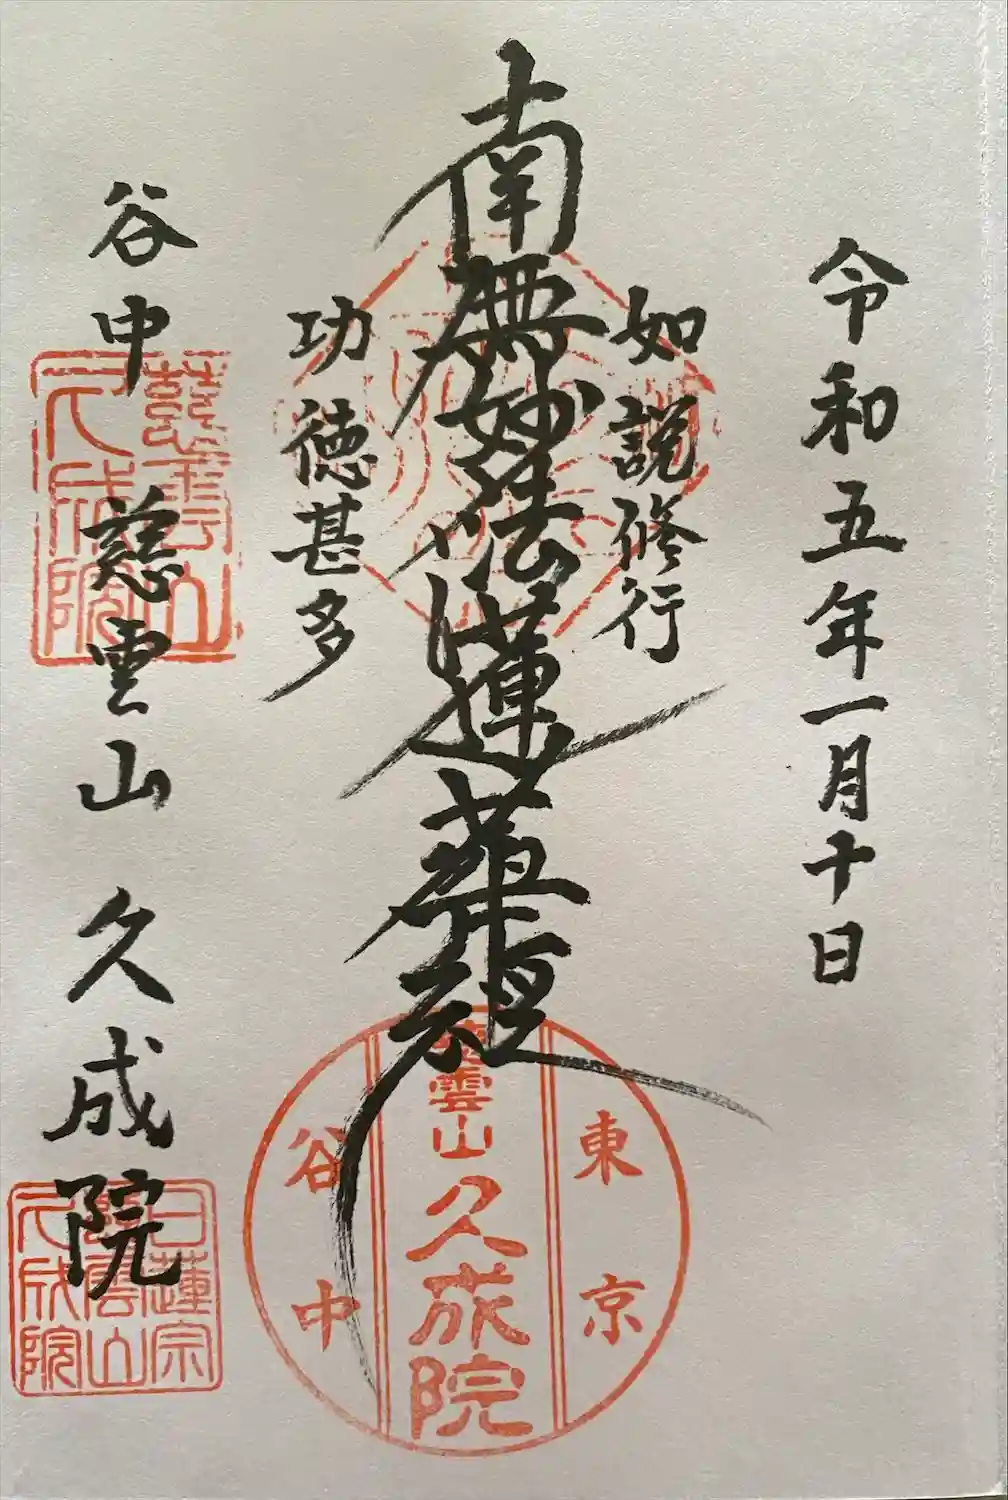 令和五年一月十日
如説修行
南無妙法蓮華経
功徳甚多
谷中 慈雲山 久成院
慈雲山
久成院
東京
慈雲山 久成院
谷中
日蓮宗
慈雲山
久成院